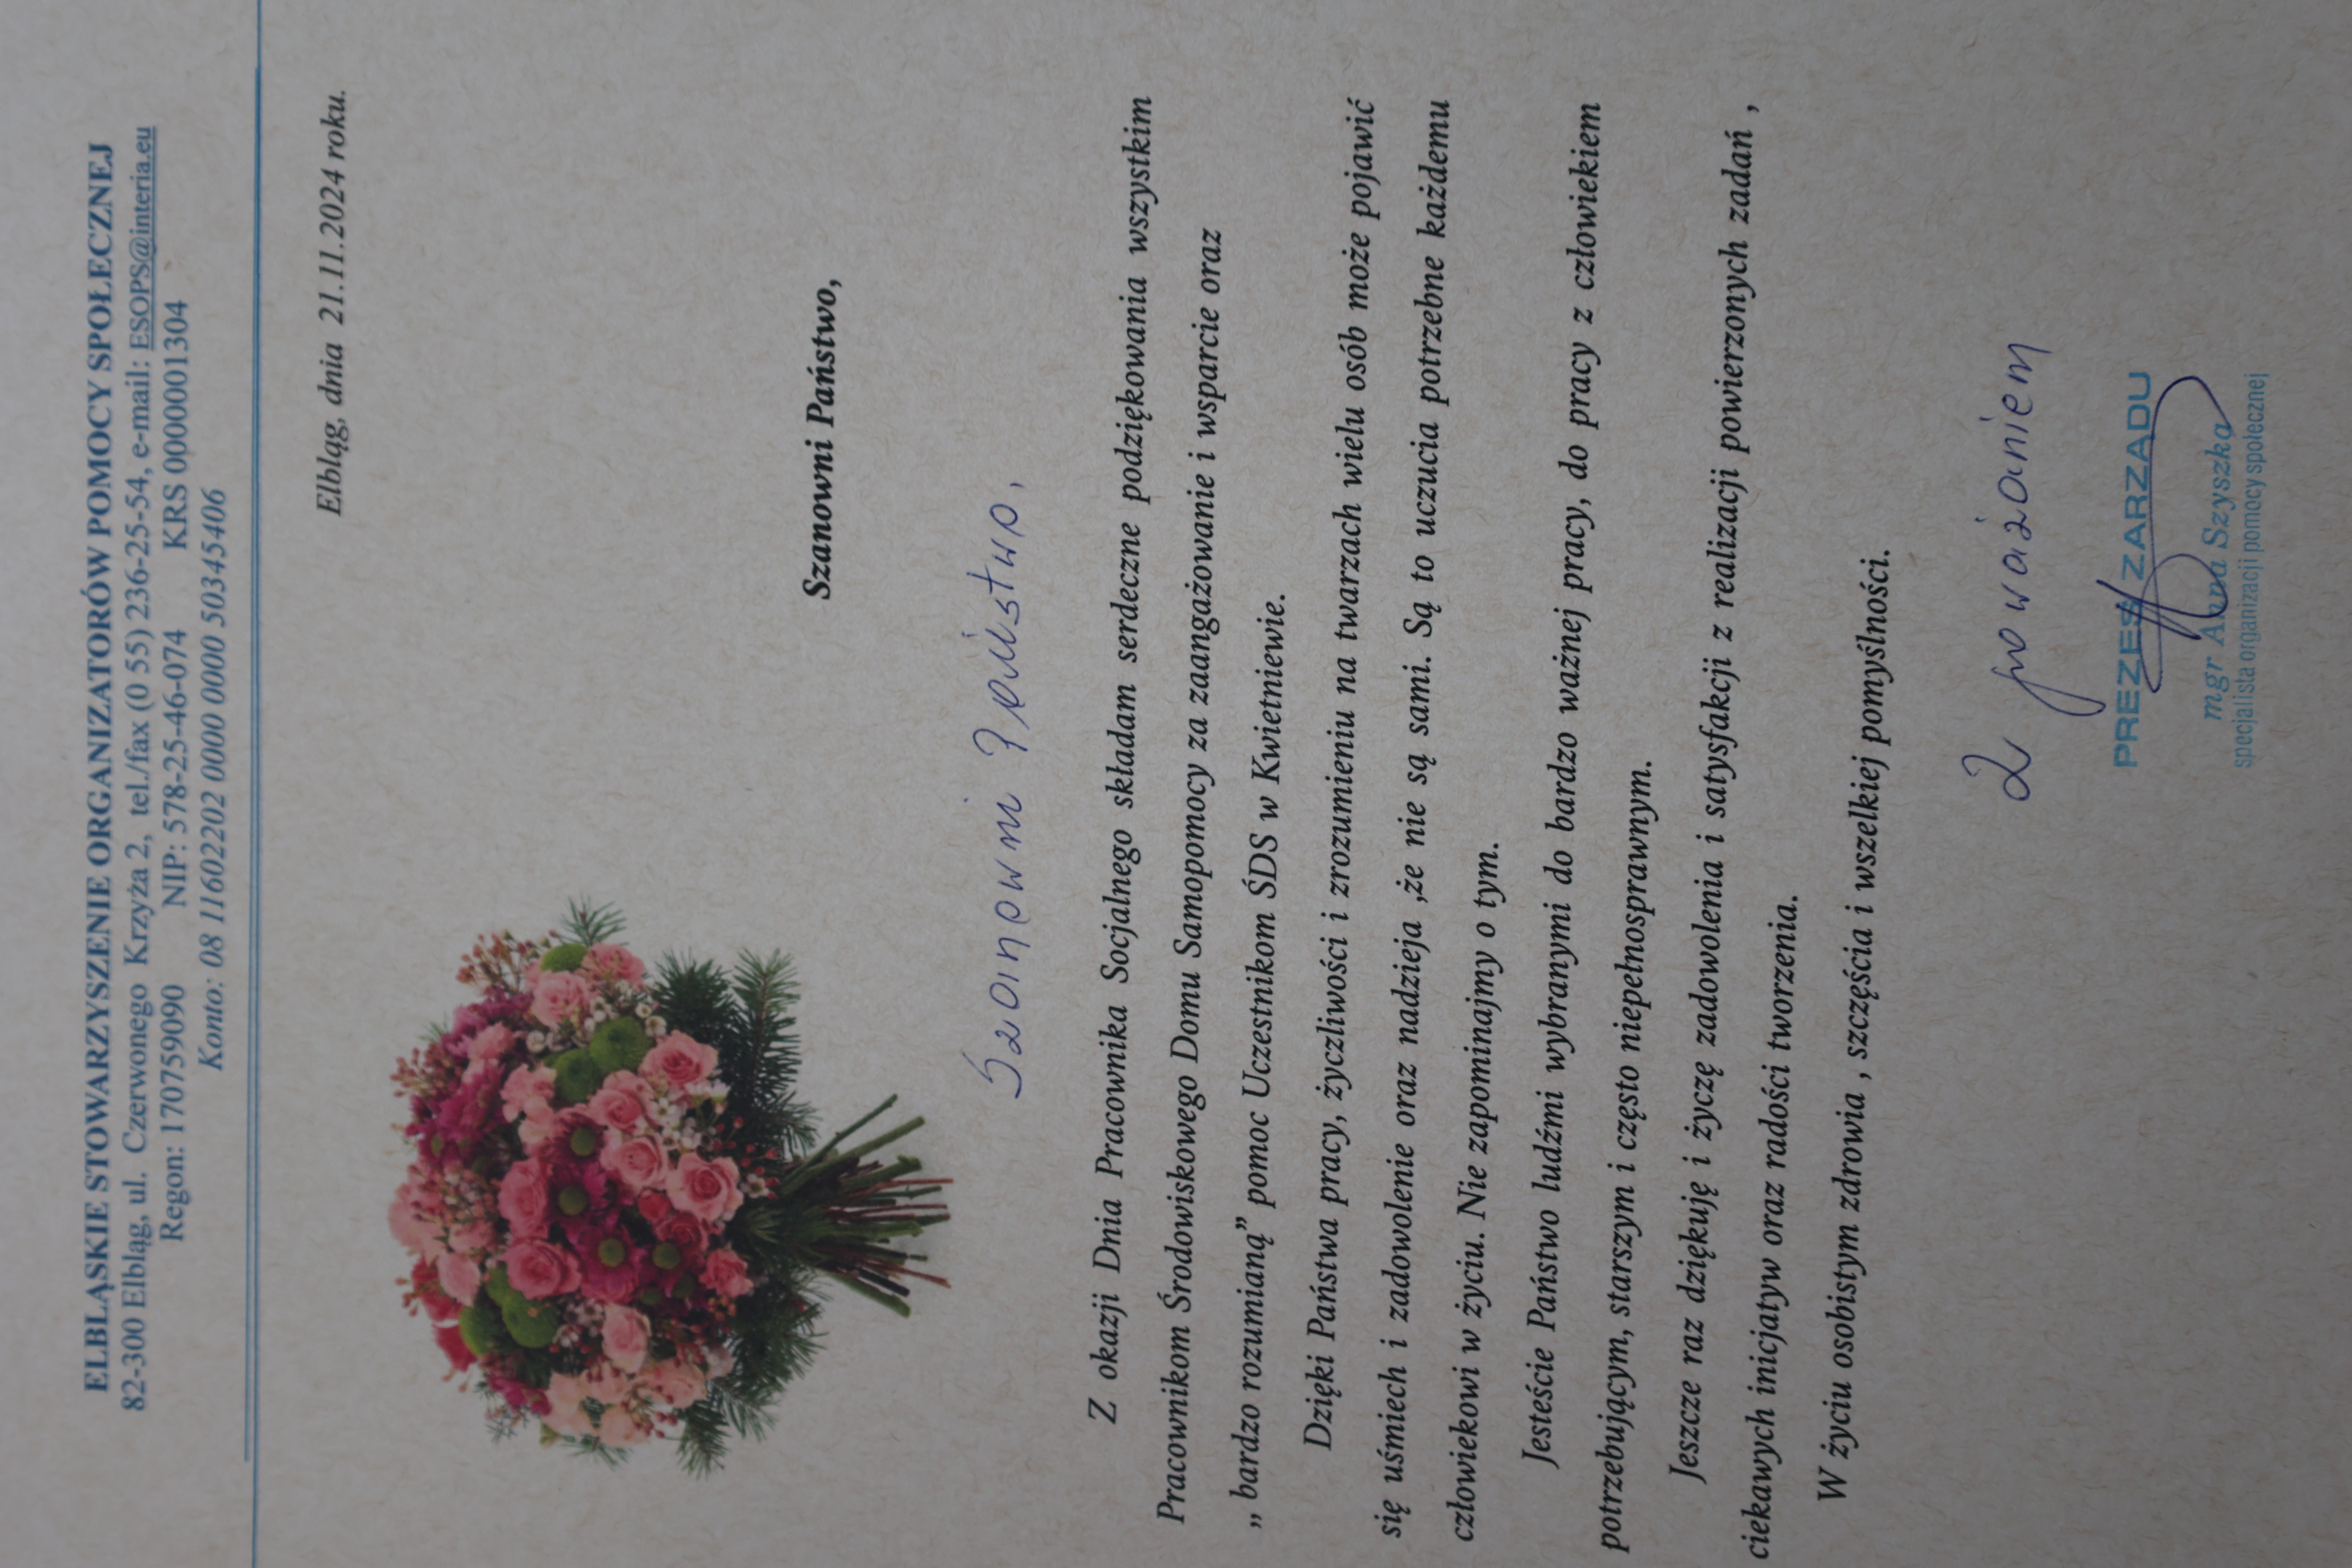 ELBLĄSKIE STOWARZYSZENIE ORGANIZATORÓW POMOCY SPOŁECZNEJ
82-300 Elbląg, ul. Czerwonego Krzyża 2, tel./fax (0 55) 236-25-54, e-mail: ESOPS@interia.eu
Regon: 170759090 NIP: 578-25-46-074 KRS 0000001304
Konto: 08 11602202 0000 0000 50345406
Elbląg, dnia 21.11.2024 roku.
Szanowni Państwo,
Szanowni Państwo,
Z okazji Dnia Pracownika Socjalnego składam serdeczne podziękowania wszystkim
Pracownikom Środowiskowego Domu Samopomocy za zaangażowanie i wsparcie oraz
„ bardzo rozumianą” pomoc Uczestnikom ŚDS w Kwietniewie.
Dzięki Państwa pracy, życzliwości i zrozumieniu na twarzach wielu osób może pojawić
się uśmiech i zadowolenie oraz nadzieja ,że nie są sami. Są to uczucia potrzebne każdemu
człowiekowi w życiu. Nie zapominajmy o tym.
Jesteście Państwo ludźmi wybranymi do bardzo ważnej pracy, do pracy z człowiekiem
potrzebującym, starszym i często niepełnosprawnym.
Jeszcze raz dziękuję i życzę zadowolenia i satysfakcji z realizacji powierzonych zadań ,
ciekawych inicjatyw oraz radości tworzenia.
W życiu osobistym zdrowia , szczęścia i wszelkiej pomyślności.
Z poważaniem
PREZES ZARZĄDU
mgr Anna Szyszka
specjalista organizacji pomocy społecznej